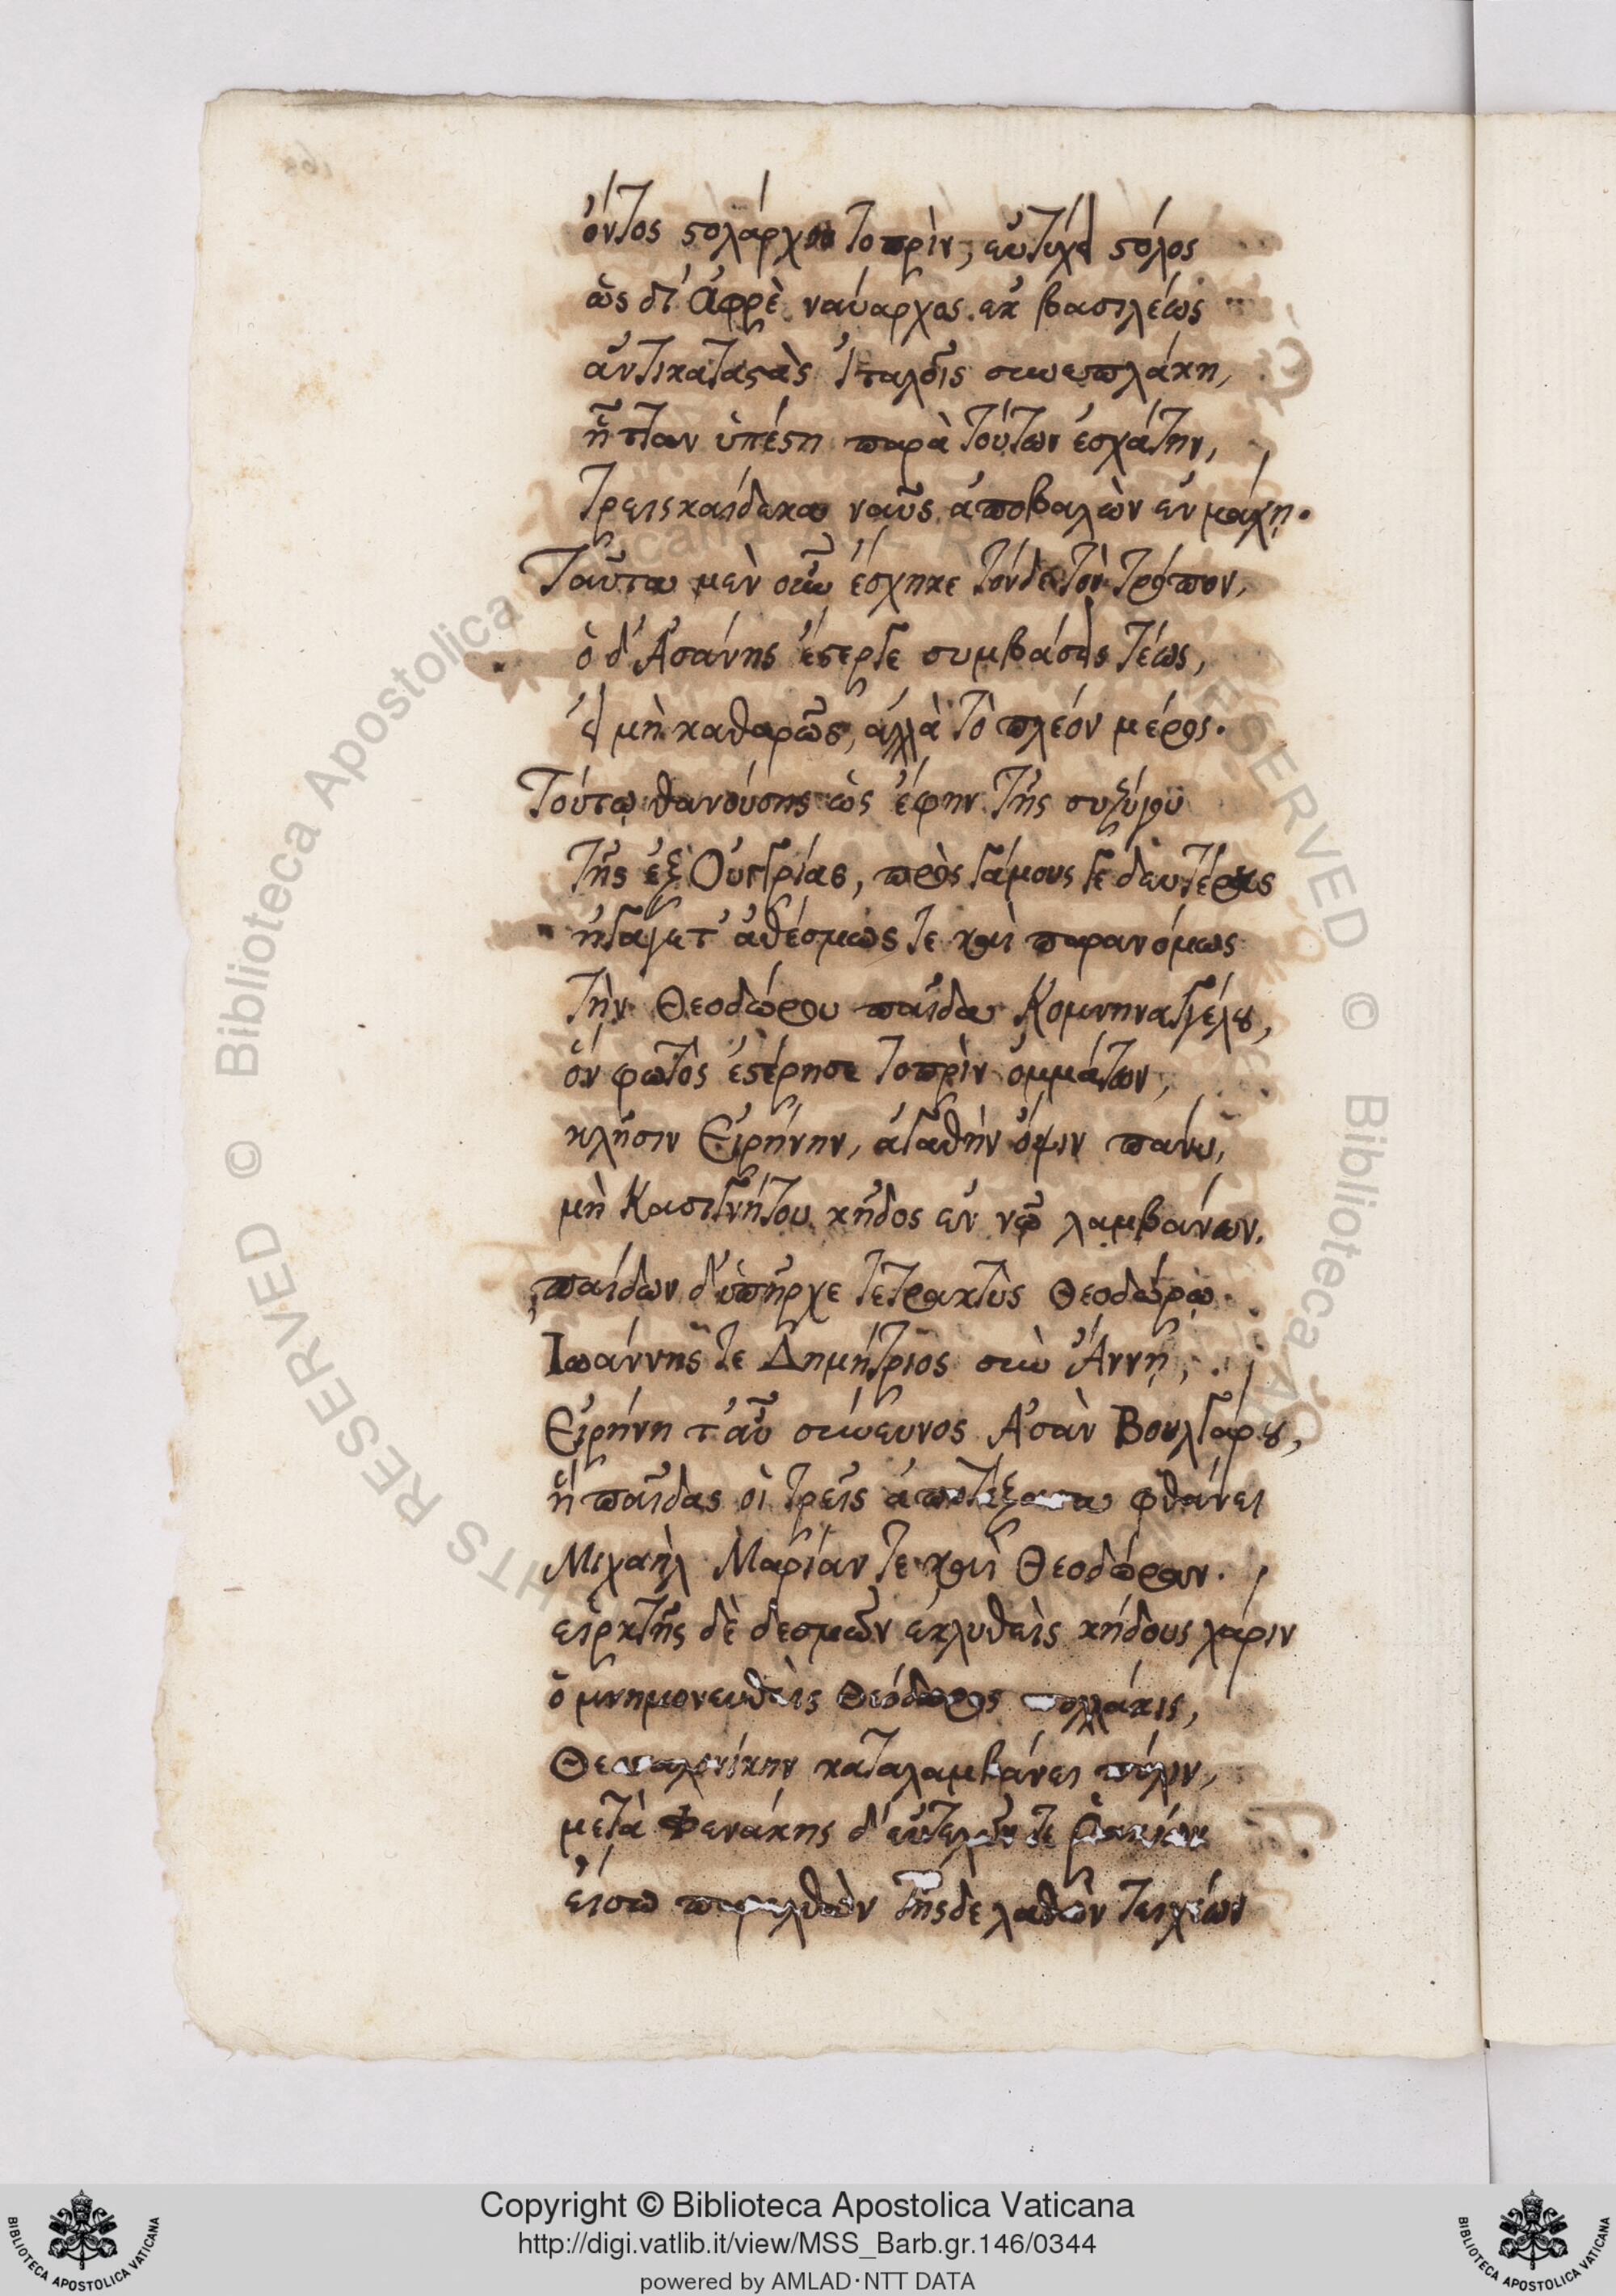 ὄντος στολάρχου τοπρὶν, εὐτυχεῖ στόλος
ὡς δι' Ἀφρὲ ναύαρχος ἐκ βασιλέως
ἀντικαταστὰς Ἰταλοῖς συνεπλάκη,
ἧτταν ὑπέστη παρὰ τούτων ἐσχάτην,
τρεισκαίδεκα ναῦς ἀποβαλὼν ἐν μάχῃ.
Ταῦτα μὲν οὖν ἔσχηκε τόνδε τὸν τρόπον,
ὁ δ' Ἀσάνης ἔστεργε συμβάσεις τέως,
εἰ μὴ καθαρῶς, ἀλλὰ τὸ πλέον μέρος.
Τούτῳ θανούσης ὡς ἔφην τῆς συζύγου
τῆς ἐξ Οὐγγρίας, πρὸς γάμους γε δευτέρους
ἠγάγετ' ἀθέσμως τε καὶ παρανόμως
τὴν Θεοδώρου παῖδα Κομνηναγγέλου,
ὃν φωτὸς ἐστέρησε τοπρὶν ὀμμάτων,
κλῆσιν Εἰρήνην, ἀγαθὴν ὄψιν πάνυ,
μὴ Κασιγνήτου κῆδος ἐν νῷ λαμβάνων.
παίδων δ' ὑπῆρχε τετρακτὺς Θεοδώρῳ.
Ἰωάννης τε Δημήτριος σὺν Ἄννῃ,
Εἰρήνη τ' αὖ σύνευνος Ἀσὰν Βουλγάρου,
ἣ παῖδας οἱ τρεῖς ἀποτέξασα φθάνει
Μιχαὴλ Μαρίαν τε καὶ Θεοδώραν.
εἱρκτῆς δὲ δεσμῶν ἐκλυθεὶς κήδους χάριν
ὁ μνημονευθεὶς Θεόδωρος πολλάκις,
Θεσσαλονίκην καταλαμβάνει πόλιν,
μετὰ Φενάκης δ' εὐτελῶν τε ῥακίων
εἴσω παρελθὼν τῆσδε λαθὼν τειχέων
Copyright © Biblioteca Apostolica Vaticana
http://digi.vatlib.it/view/MSS_Barb.gr.146/0344
powered by AMLAD·NTT DATA
BIBLIOTECA APOSTOLICA VATICANA
BIBLIOTECA APOSTOLICA VATICANA
© Biblioteca Apostolica
RESERVED © Biblioteca